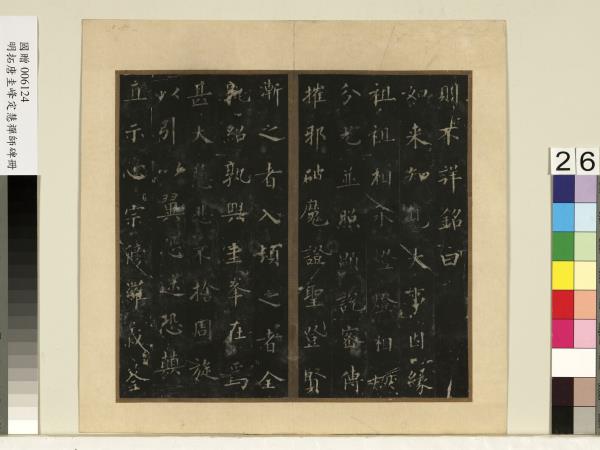 國贈 006124
明拓唐圭峰定慧禪師碑冊
則不詳銘曰
如來知見大事因緣
祖祖相承燈燈相燃
分光並照顯說密傳
摧邪破魔證聖登賢
漸之者入頓之者全
孰紹孰興圭峯在焉
甚大慈悲不捨周旋
以引以翼恐迷恐顛
直示心宗傍羅義筌
26